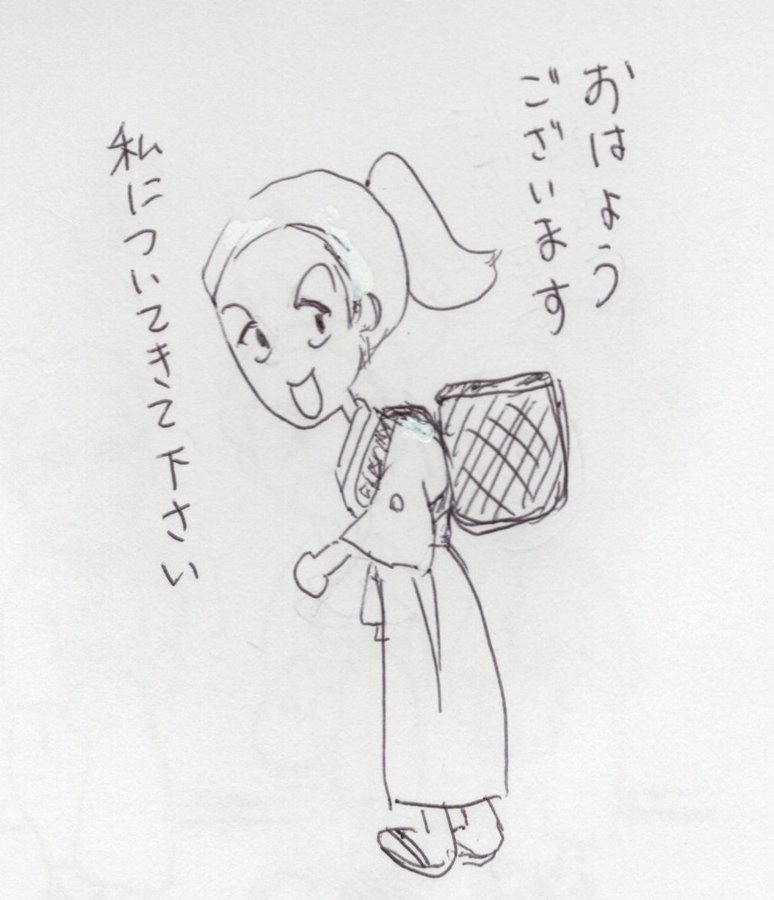 おはよう
ございます
私についてきて下さい